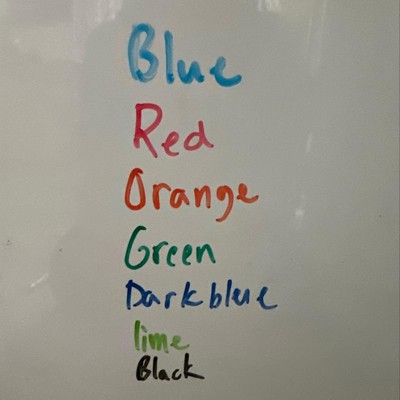 Blue
Red
Orange
Green
Darkblue
lime
Black